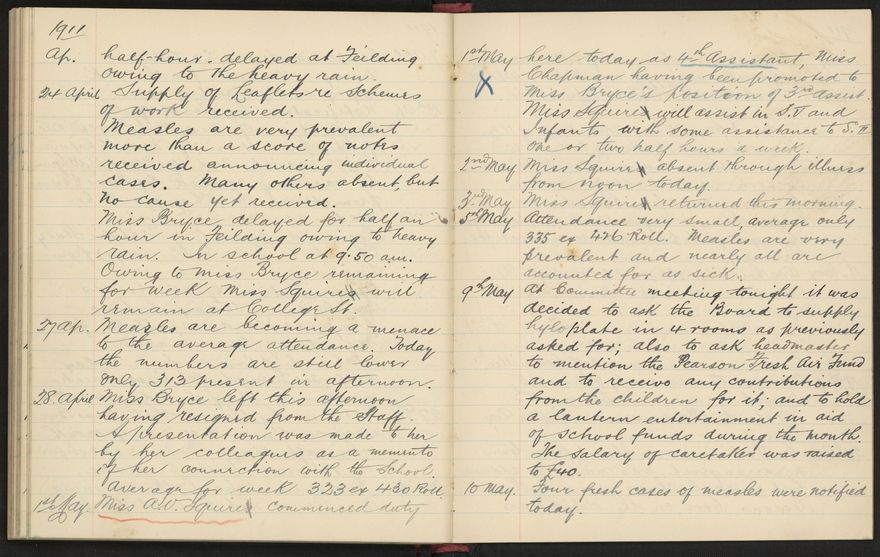 1911
Ap. half-hour. delayed at Feilding
owing to the heavy rain.
24 April Supply of Leaflets re Schemes
of work received.
Measles are very prevalent
more than a score of notes
received announcing individual
cases. Many others absent, but
no cause yet received.
Miss Bryce delayed for half an
hour in Feilding owing to heavy
rain. In school at 9.50 a.m.
Owing to Miss Bryce remaining
for week Miss Squire will
remain at College St.
27 Ap. Measles are becoming a menace
to the average attendance. Today
the numbers are still lower
only 313 present in afternoon.
28. April Miss Bryce left this afternoon
having resigned from the Staff.
A presentation was made to her
by her colleagues as a memento
of her connection with the School.
Average for week 323 ex 430 Roll.
1st May. Miss A.V. Squire commenced duty
1st May here today as 4th Assistant, Miss
Chapman having been promoted to
Miss Bryce's position of 3rd assist.
Miss Squire will assist in S.V and
Infants with some assistance to S.
one or two half hours a week.
2nd May Miss Squire absent through illness
from noon today.
3rd May Miss Squire returned this morning.
5th May Attendance very small, average only
335 ex 426 Roll. Measles are very
prevalent and nearly all are
accounted for as sick.
9th May At Committee meeting tonight it was
decided to ask the Board to supply
hyloplate in 4 rooms as previously
asked for; also to ask headmaster
to mention the Pearson Fresh Air Fund
and to receive any contributions
from the children for it; and to hold
a lantern entertainment in aid
of school funds during the month.
The Salary of caretaker was raised
to £40.
10 May. Four fresh cases of measles were notified
today.